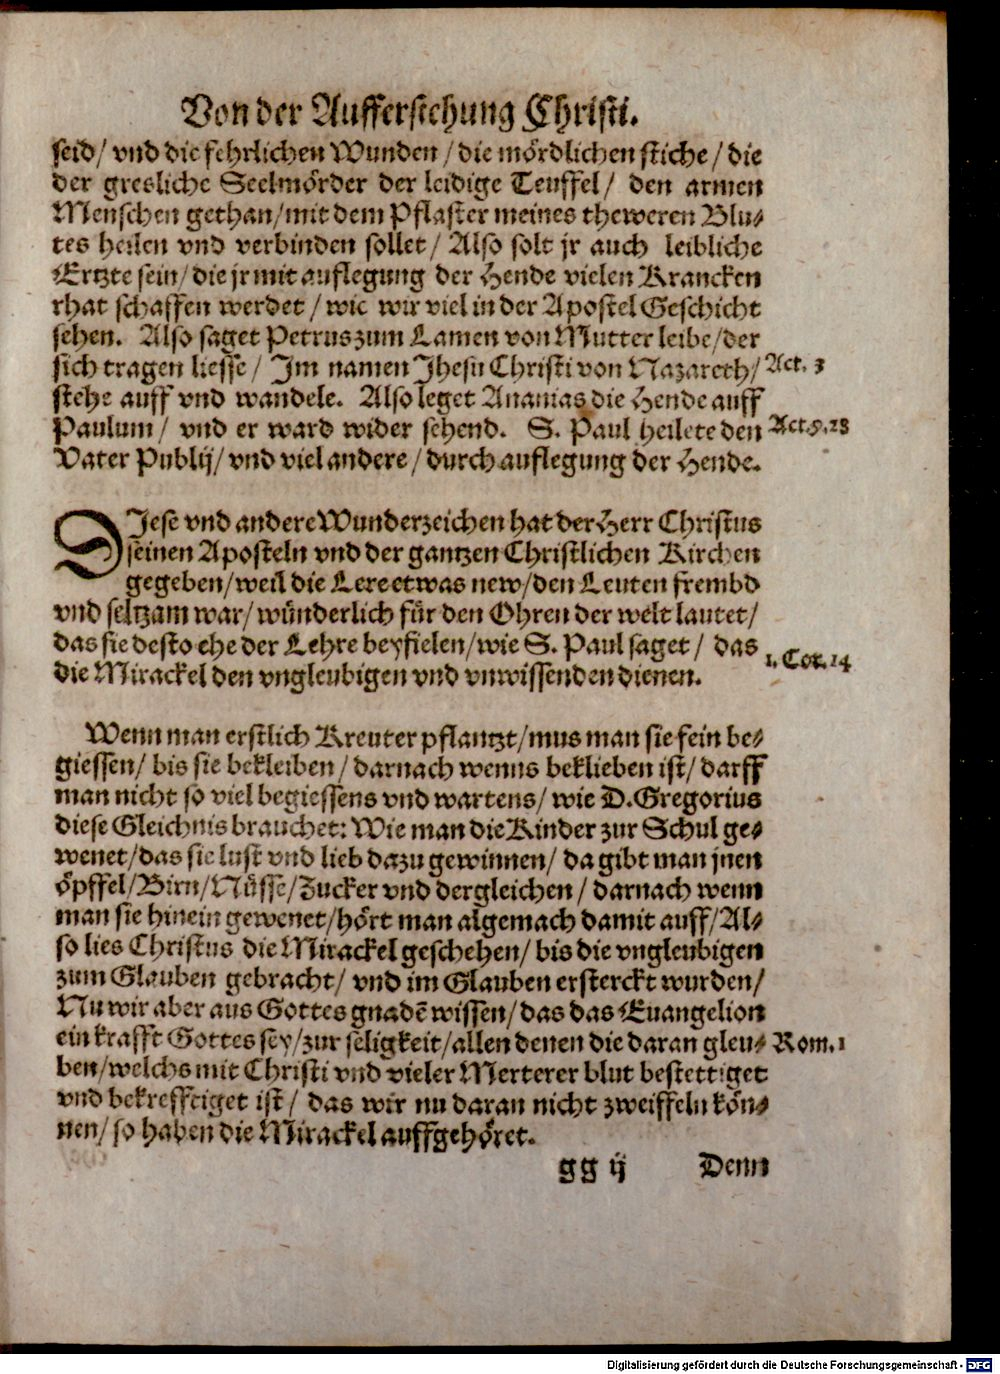 Von der Aufferstehung Christi.
seid/ vnd die fehrlichen Wunden/ die mördlichen stiche/ die
der gresliche Seelmörder der leidige Teuffel/ den armen
Menschen gethan/ mit dem Pflaster meines theweren Blu-
tes heilen vnd verbinden sollet/ Also solt jr auch leibliche
Ertzte sein/ die jr mit auflegung der Hende vielen Krancken
rhat schaffen werdet/ wie wir viel in der Apostel Geschicht
sehen. Also saget Petrus zum Lamen von Mutter leibe/ der
sich tragen liesse/ Im namen Jhesu Christi von Nazareth/ Act. 3
stehe auff vnd wandele. Also leget Ananias die Hende auff
Paulum/ vnd er ward wider sehend. S. Paul heilete den Act. 9. 28
Vater Publij/ vnd viel andere/ durch auflegung der Hende.
DJese vnd andere Wunderzeichen hat der Herr Christus
seinen Aposteln vnd der gantzen Christlichen Kirchen
gegeben/ weil die Lere etwas new/ den Leuten frembd
vnd seltzam war/ wünderlich für den Ohren der welt lautet/
das sie desto ehe der Lehre beyfielen/ wie S. Paul saget/ das 1. Cor. 14
die Mirackel den vngleubigen vnd vnwissenden dienen.
Wenn man erstlich Kreuter pflantzt/ mus man sie fein be-
giessen/ bis sie bekleiben/ darnach wenns beklieben ist/ darff
man nicht so viel begiessens vnd wartens/ wie D. Gregorius
diese Gleichnis brauchet: Wie man die Kinder zur Schul ge-
wenet/ das sie lust vnd lieb dazu gewinnen/ da gibt man jnen
öpffel/ Birn/ Nüsse/ Zucker vnd dergleichen/ darnach wenn
man sie hinein gewenet/ hört man algemach damit auff/ Al-
so lies Christus die Mirackel geschehen/ bis die vngleubigen
zum Glauben gebracht/ vnd im Glauben ersterckt wurden/
Nu wir aber aus Gottes gnadē wissen/ das das Euangelion
ein krafft Gottes sey/ zur seligkeit/ allen denen die daran gleu- Rom. 1
ben/ welchs mit Christi vnd vieler Merterer blut bestettiget
vnd bekrefftiget ist/ das wir nu daran nicht zweiffeln kön-
nen/ so haben die Mirackel auffgehöret.
gg ij Denn
Digitalisierung gefördert durch die Deutsche Forschungsgemeinschaft - DFG